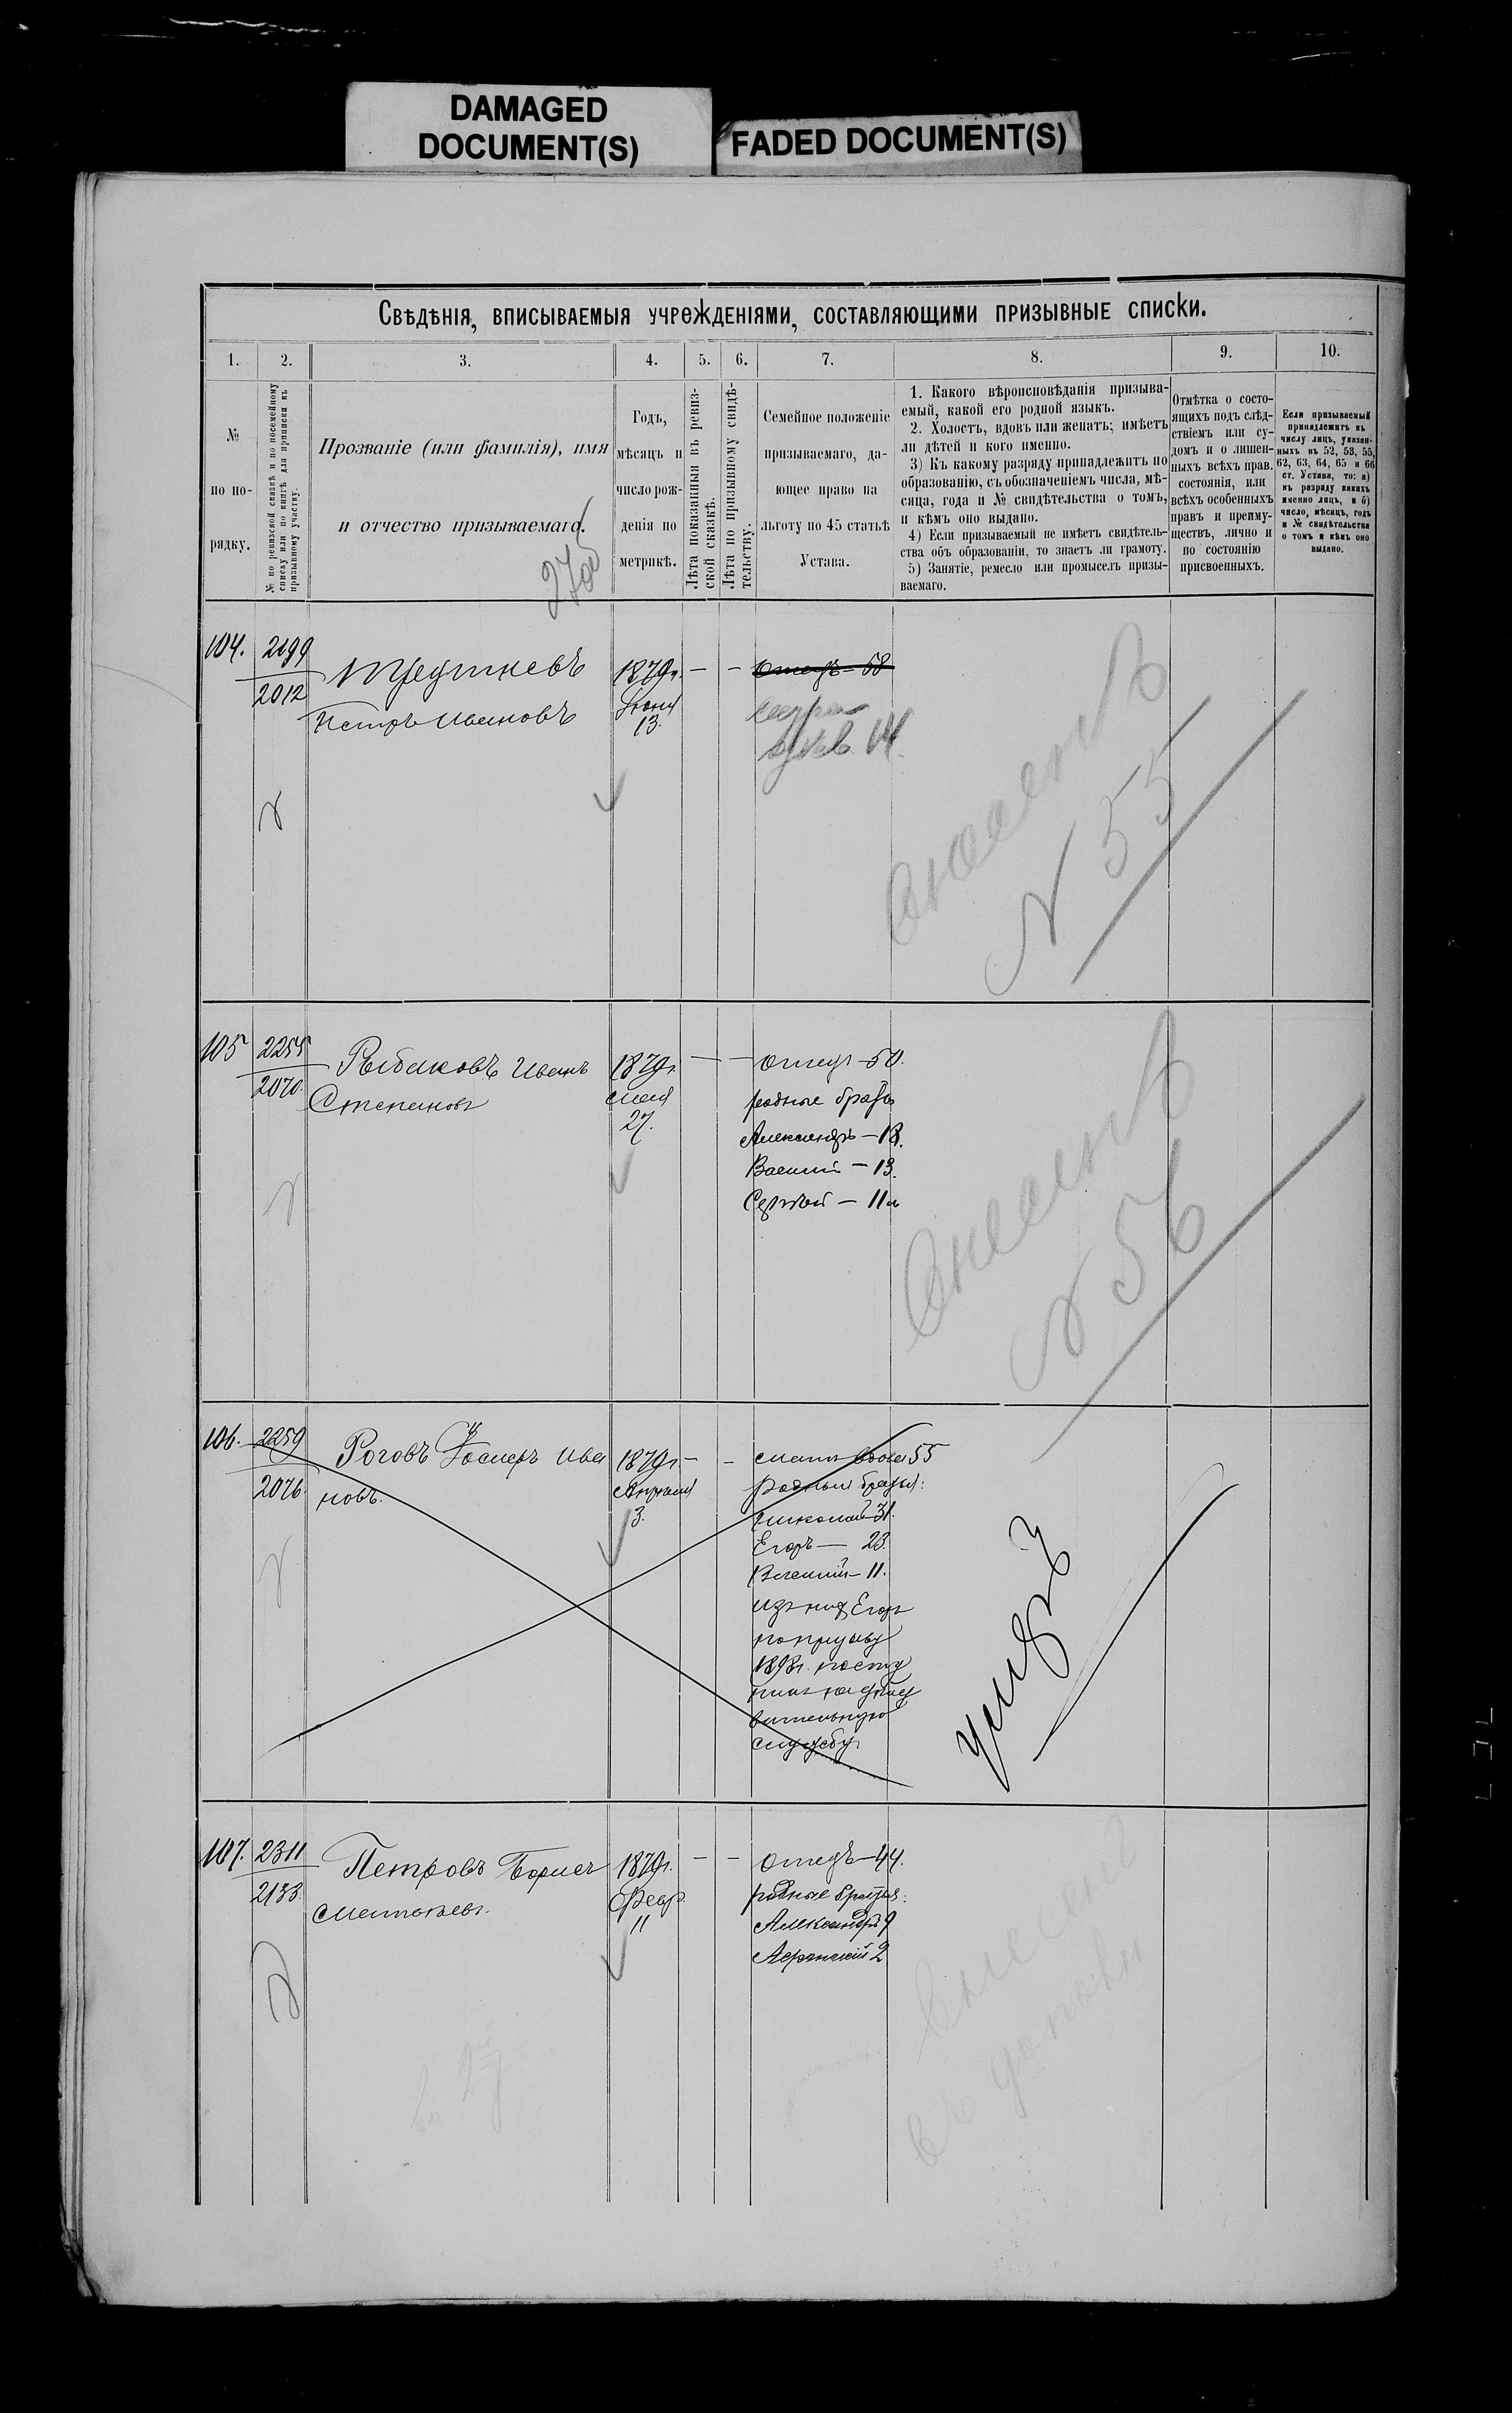 DAMAGED
DOCUMENT(S)
FADED DOCUMENT(S)
Свѣдѣнія, вписываемыя учрежденіями, составляющими призывные списки.
1.
2.
3.
4.
5.
6.
7.
8.
9.
10.
№
по по-
рядку.
№ по ревизской сказкѣ и по посемейному
списку или по книгѣ для приписки къ
призывному участку.
Прозваніе (или фамилія), имя
и отчество призываемаго.
Годъ,
мѣсяцъ и
число рож-
денія по
метрикѣ.
Лѣта показанныя въ ревиз-
ской сказкѣ.
Лѣта по призывному свидѣ-
тельству.
Семейное положеніе
призываемаго, да-
ющее право на
льготу по 45 статьѣ
Устава.
1. Какого вѣроисповѣданія призыва-
емый, какой его родной языкъ.
2. Холостъ, вдовъ или женатъ; имѣетъ
ли дѣтей и кого именно.
3) Къ какому разряду принадлежитъ по
образованію, съ обозначеніемъ числа, мѣ-
сяца, года и № свидѣтельства о томъ,
и кѣмъ оно выдано.
4) Если призываемый не имѣетъ свидѣтель-
ства объ образованіи, то знаетъ ли грамоту.
5) Занятіе, ремесло или промыселъ призы-
ваемаго.
Отмѣтка о состо-
ящихъ подъ слѣд-
ствіемъ или су-
домъ и о лишен-
ныхъ всѣхъ правъ.
состоянія, или
всѣхъ особенныхъ
правъ и преиму-
ществъ, лично и
по состоянію
присвоенныхъ.
Если призываемый
принадлежитъ къ
числу лицъ, указан-
ныхъ въ 52, 53, 55,
62, 63, 64, 65 и 66
ст. Устава, то: а)
къ разряду какихъ
именно лицъ, и б)
число, мѣсяцъ, годъ
и № свидѣтельства
о томъ и кѣмъ оно
выдано.
104.
2199
2012
Петръ Ивановъ
1879г.
Іюня
13.
— —
Отецъ—58
14
N 55
105
2255
2070.
Рыбаковъ Иванъ
Степановъ
1879г.
мая
27.
— —
отецъ—50.
родные братья
Александръ—18.
Василій—13.
Сергѣй—11
N 56
106.
2259
2076.
Роговъ Ива
новъ.
1879г.
Апрѣля
3.
— —
мать вдова 55
родные братья:
Николай 31.
Егоръ— 23.
Василій—11.
изъ нихъ Егоръ
по призыву
1898г. посту
пилъ на дѣйст
вительную
службу.
умеръ
107.
2311
2133.
Петровъ Борисъ
Матвѣевъ.
1879г.
Февр.
11
— —
отецъ—44.
родные братья:
Александръ 9
Афанасій 2